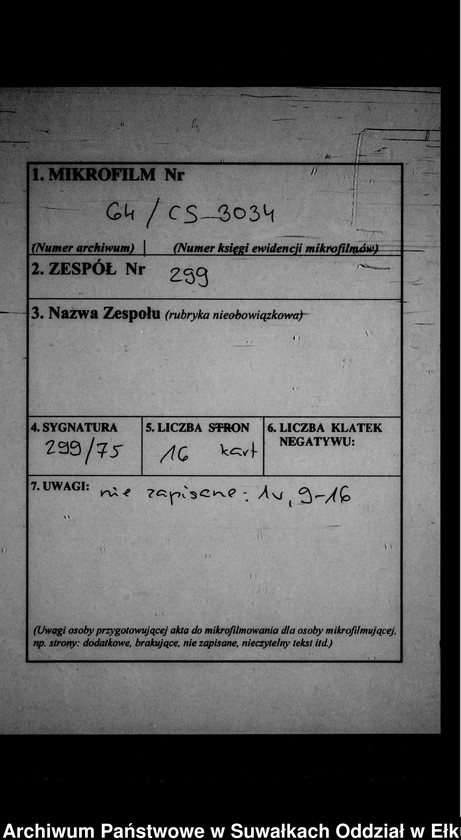 1. MIKROFILM Nr
64 / CS-3034
(Numer archiwum) (Numer księgi ewidencji mikrofilmów)
2. ZESPÓŁ Nr 299
3. Nazwa Zespołu (rubryka nieobowiązkowa)
4. SYGNATURA
299/75
5. LICZBA STRON
16 kart
6. LICZBA KLATEK
NEGATYWU:
7. UWAGI: nie zapisane: 1v, 9-16
(Uwagi osoby przygotowującej akta do mikrofilmowania dla osoby mikrofilmującej,
np. strony: dodatkowe, brakujące, nie zapisane, nieczytelny tekst itd.)
Archiwum Państwowe w Suwałkach Oddział w Ełk